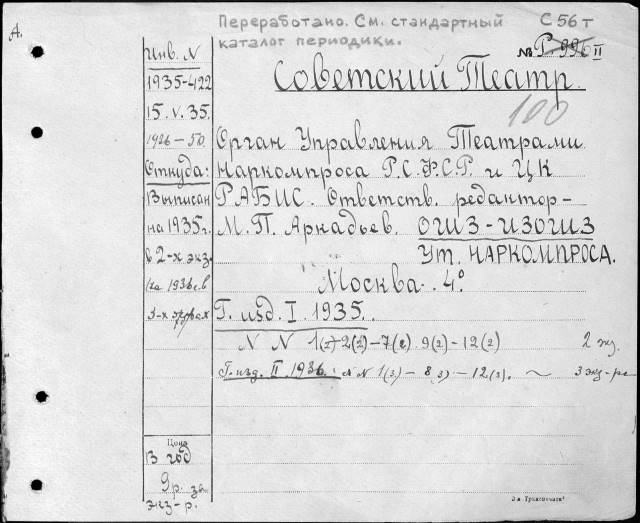 А.
Переработано. См. стандартный С 56 т
каталог периодики.
№ Р-996 II
Советский Театр.
100
Орган Управления Театрами
Наркомпроса Р.С.Ф.С.Р. и ЦК
РАБИС. Ответств. редактор –
М. П. Аркадьев. ОГИЗ – ИЗОГИЗ
Ут. НАРКОМПРОСА.
Москва . 4°
Г. изд. I. 1935.
N N 1(2) – 2(2) – 7(2) 9(2) – 12(2) 2 экз.
Г. изд. II 1936. N N 1(3) – 8(3) – 12(3). ~ 3 экз-ра
Инв. N
1935-422
15. V. 35.
1926 – 50.
Откуда:
Выписан
на 1935 г.
в 2-х экз.
на 1936 г. в
3-х экз-рах
Цена
В год
9 р. за
экз-р.